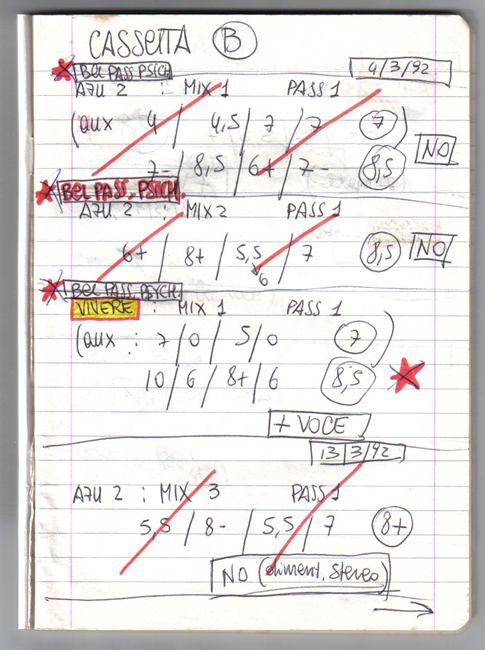 CASSETTA B
BEL PASS PSICH
4/3/92
A7U 2 : MIX 1 PASS 1
(aux 4 / 4,5 / 7 / 7 7)
7- / 8,5 / 6+ / 7- 8,5
NO
BEL PASS. PSICH.
A7U 2 : MIX 2 PASS 1
6+ / 8+ / 5,5 / 7 8,5 NO
6
BEL PASS. PSYCH.
VIVERE : MIX 1 PASS 1
(aux : 7 / 0 / 5 / 0 7)
10 / 6 / 8+ / 6 8,5
+ VOCE
13/3/92
A7U 2 : MIX 3 PASS 1
5,5 / 8- / 5,5 / 7 8+
NO (diment. Stereo)